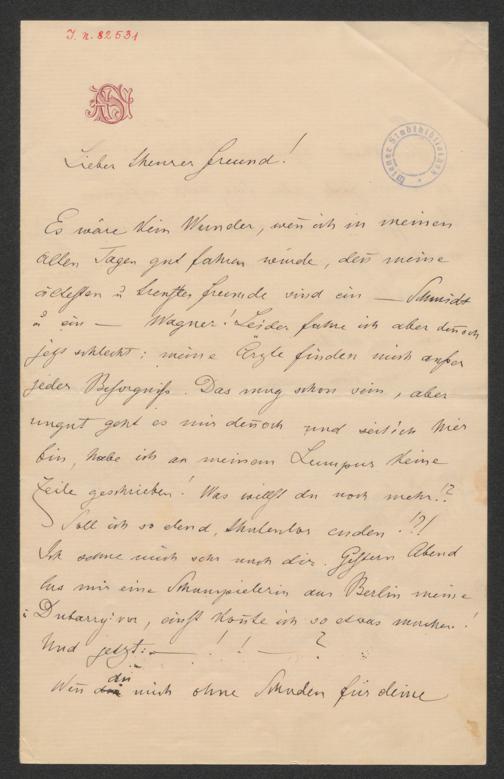 I. N. 82531
AS
Wiener Stadtbibliothek
Lieber theurer Freund!
Es wäre kein Wunder, weñ ich in meinen
alten Tagen gut fahren würde, deñ meine
ältesten u treusten Freunde sind ein — Schmidt
u ein — Wagner! Leider fahre ich aber deñoch
jetzt schlecht: meine Ärzte finden mich außer
jeder Besorgniß. Das mag schon sein, aber
ungut geht es mir deñoch und seit ich hier
bin, habe ich an meinem Lumpus keine
Zeile geschrieben! Was willst du noch mehr!?
Soll ich so elend, thatenlos enden!?!
Ich sehne mich sehr nach dir. Gestern Abend
las mir eine Schauspielerin aus Berlin meine
Dubarry vor, einst konte ich so etwas machen!
Und jetzt: — ! ! — ?
Weñ du mich ohne Schaden für deine